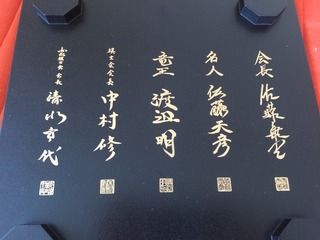 会長 佐藤康光
名人 佐藤天彦
竜王 渡辺明
棋士会会長 中村修
女流棋士会会長 清水市代